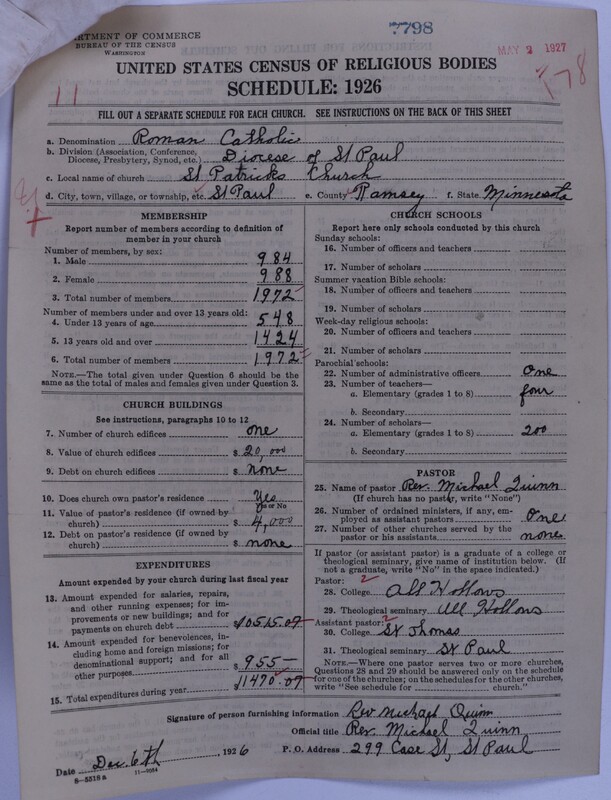 7798
DEPARTMENT OF COMMERCE
BUREAU OF THE CENSUS
WASHINGTON
MAY 2 1927
UNITED STATES CENSUS OF RELIGIOUS BODIES
SCHEDULE: 1926
11
178
FILL OUT A SEPARATE SCHEDULE FOR EACH CHURCH. SEE INSTRUCTIONS ON THE BACK OF THIS SHEET
a. Denomination Roman Catholic
b. Division (Association, Conference, Diocese, Presbytery, Synod, etc.) Diocese of St Paul
c. Local name of church St Patricks Church
d. City, town, village, or township, etc. St Paul e. County Ramsey f. State Minnesota
MEMBERSHIP
Report number of members according to definition of
member in your church
Number of members, by sex:
1. Male 984
2. Female 988
3. Total number of members 1972
Number of members under and over 13 years old:
4. Under 13 years of age 548
5. 13 years old and over 1424
6. Total number of members 1972
NOTE.—The total given under Question 6 should be
same as the total of males and females given under Question 3.
CHURCH BUILDINGS
See instructions, paragraphs 10 to 12
7. Number of church edifices one
8. Value of church edifices $20,000
9. Debt on church edifices $ none
10. Does church own pastor's residence Yes
Yes or No
11. Value of pastor's residence (if owned by
church) $ 4,000
12. Debt on pastor's residence (if owned by
church) $ none
EXPENDITURES
Amount expended by your church during last fiscal year
13. Amount expended for salaries, repairs,
and other running expenses; for im-
provements or new buildings; and for
payments on church debt $10515.07
14. Amount expended for benevolences, in-
cluding home and foreign missions; for
denominational support; and for all
other purposes $ 955—
15. Total expenditures during year $ 11470.07
CHURCH SCHOOLS
Report here only schools conducted by this church
Sunday schools:
16. Number of officers and teachers
17. Number of scholars
Summer vacation Bible schools:
18. Number of officers and teachers
19. Number of scholars
Week-day religious schools:
20. Number of officers and teachers
21. Number of scholars
Parochial schools:
22. Number of administrative officers One
23. Number of teachers—
a. Elementary (grades 1 to 8) four
b. Secondary
24. Number of scholars—
a. Elementary (grades 1 to 8) 200
b. Secondary
PASTOR
25. Name of pastor Rev. Michael Quinn
(If church has no pastor, write "None")
26. Number of ordained ministers, if any, em-
ployed as assistant pastors One
27. Number of other churches served by the
pastor or his assistants none
If pastor (or assistant pastor) is a graduate of a college or
theological seminary, give name of institution below. (If
not a graduate, write "No" in the space indicated.)
Pastor: 2
28. College All Hollows
29. Theological seminary All Hollows
Assistant pastor: 2
30. College St Thomas
31. Theological seminary St Paul
NOTE.—Where one pastor serves two or more churches,
Questions 28 and 29 should be answered only on the schedule
for one of the churches; on the schedules for the other churches,
write "See schedule for church."
Signature of person furnishing information Rev Michael Quinn
Official title Rev. Michael Quinn
Date Dec. 6th, 1926 P. O. Address 299 Case St, St Paul
8—5518a 11—9084